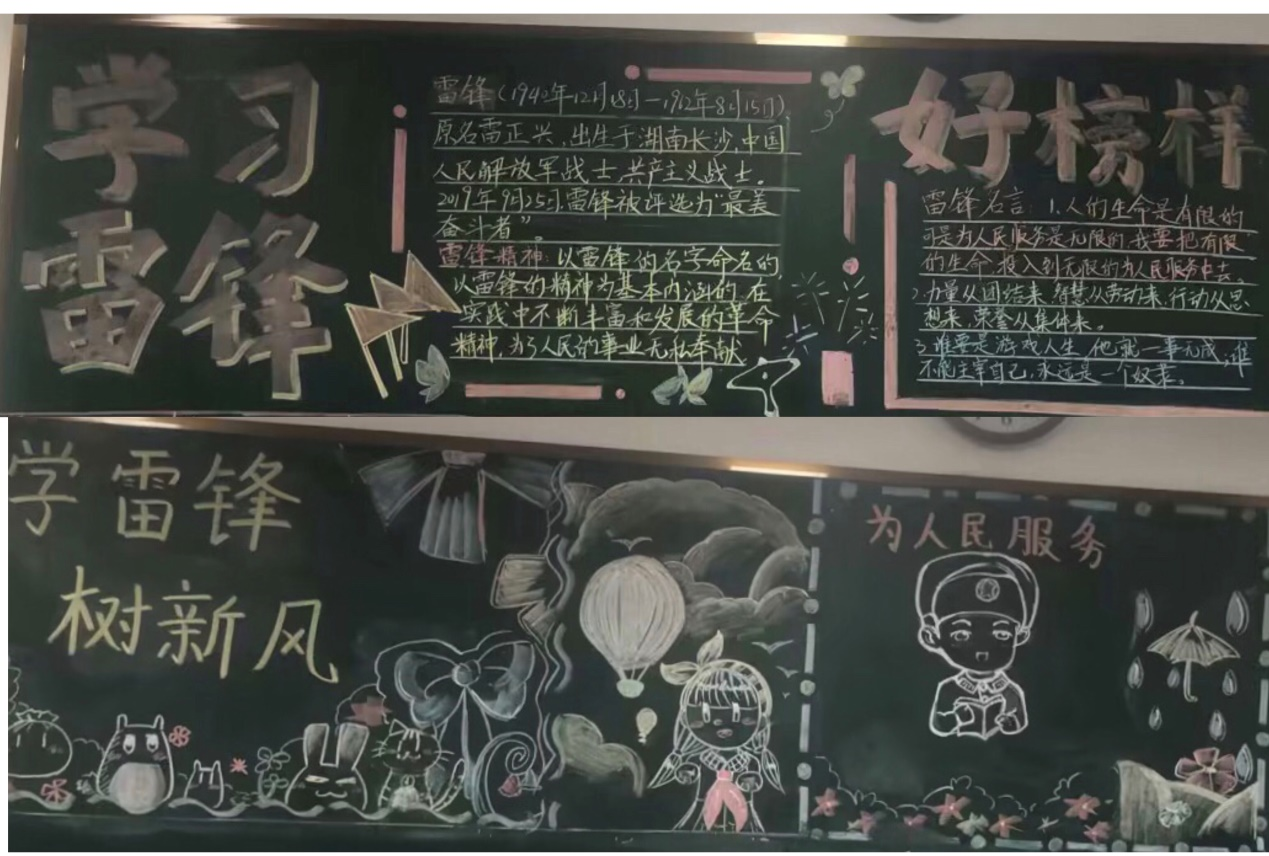 学习
雷锋
雷锋(1940年12月18日—1962年8月15日),
原名雷正兴,出生于湖南长沙,中国
人民解放军战士,共产主义战士。
2019年9月25日,雷锋被评选为“最美
奋斗者”。
雷锋精神:以雷锋的名字命名的
以雷锋的精神为基本内涵的,在
实践中不断丰富和发展的革命
精神,为了人民的事业无私奉献
好榜样
雷锋名言:1.人的生命是有限的
可是为人民服务是无限的,我要把有限
的生命,投入到无限的为人民服务中去。
2.力量从团结来,智慧从劳动来,行动从思
想来,荣誉从集体来。
3.谁要是游戏人生,他就一事无成,谁
不能主宰自己,永远是一个奴隶。
学雷锋
树新风
为人民服务